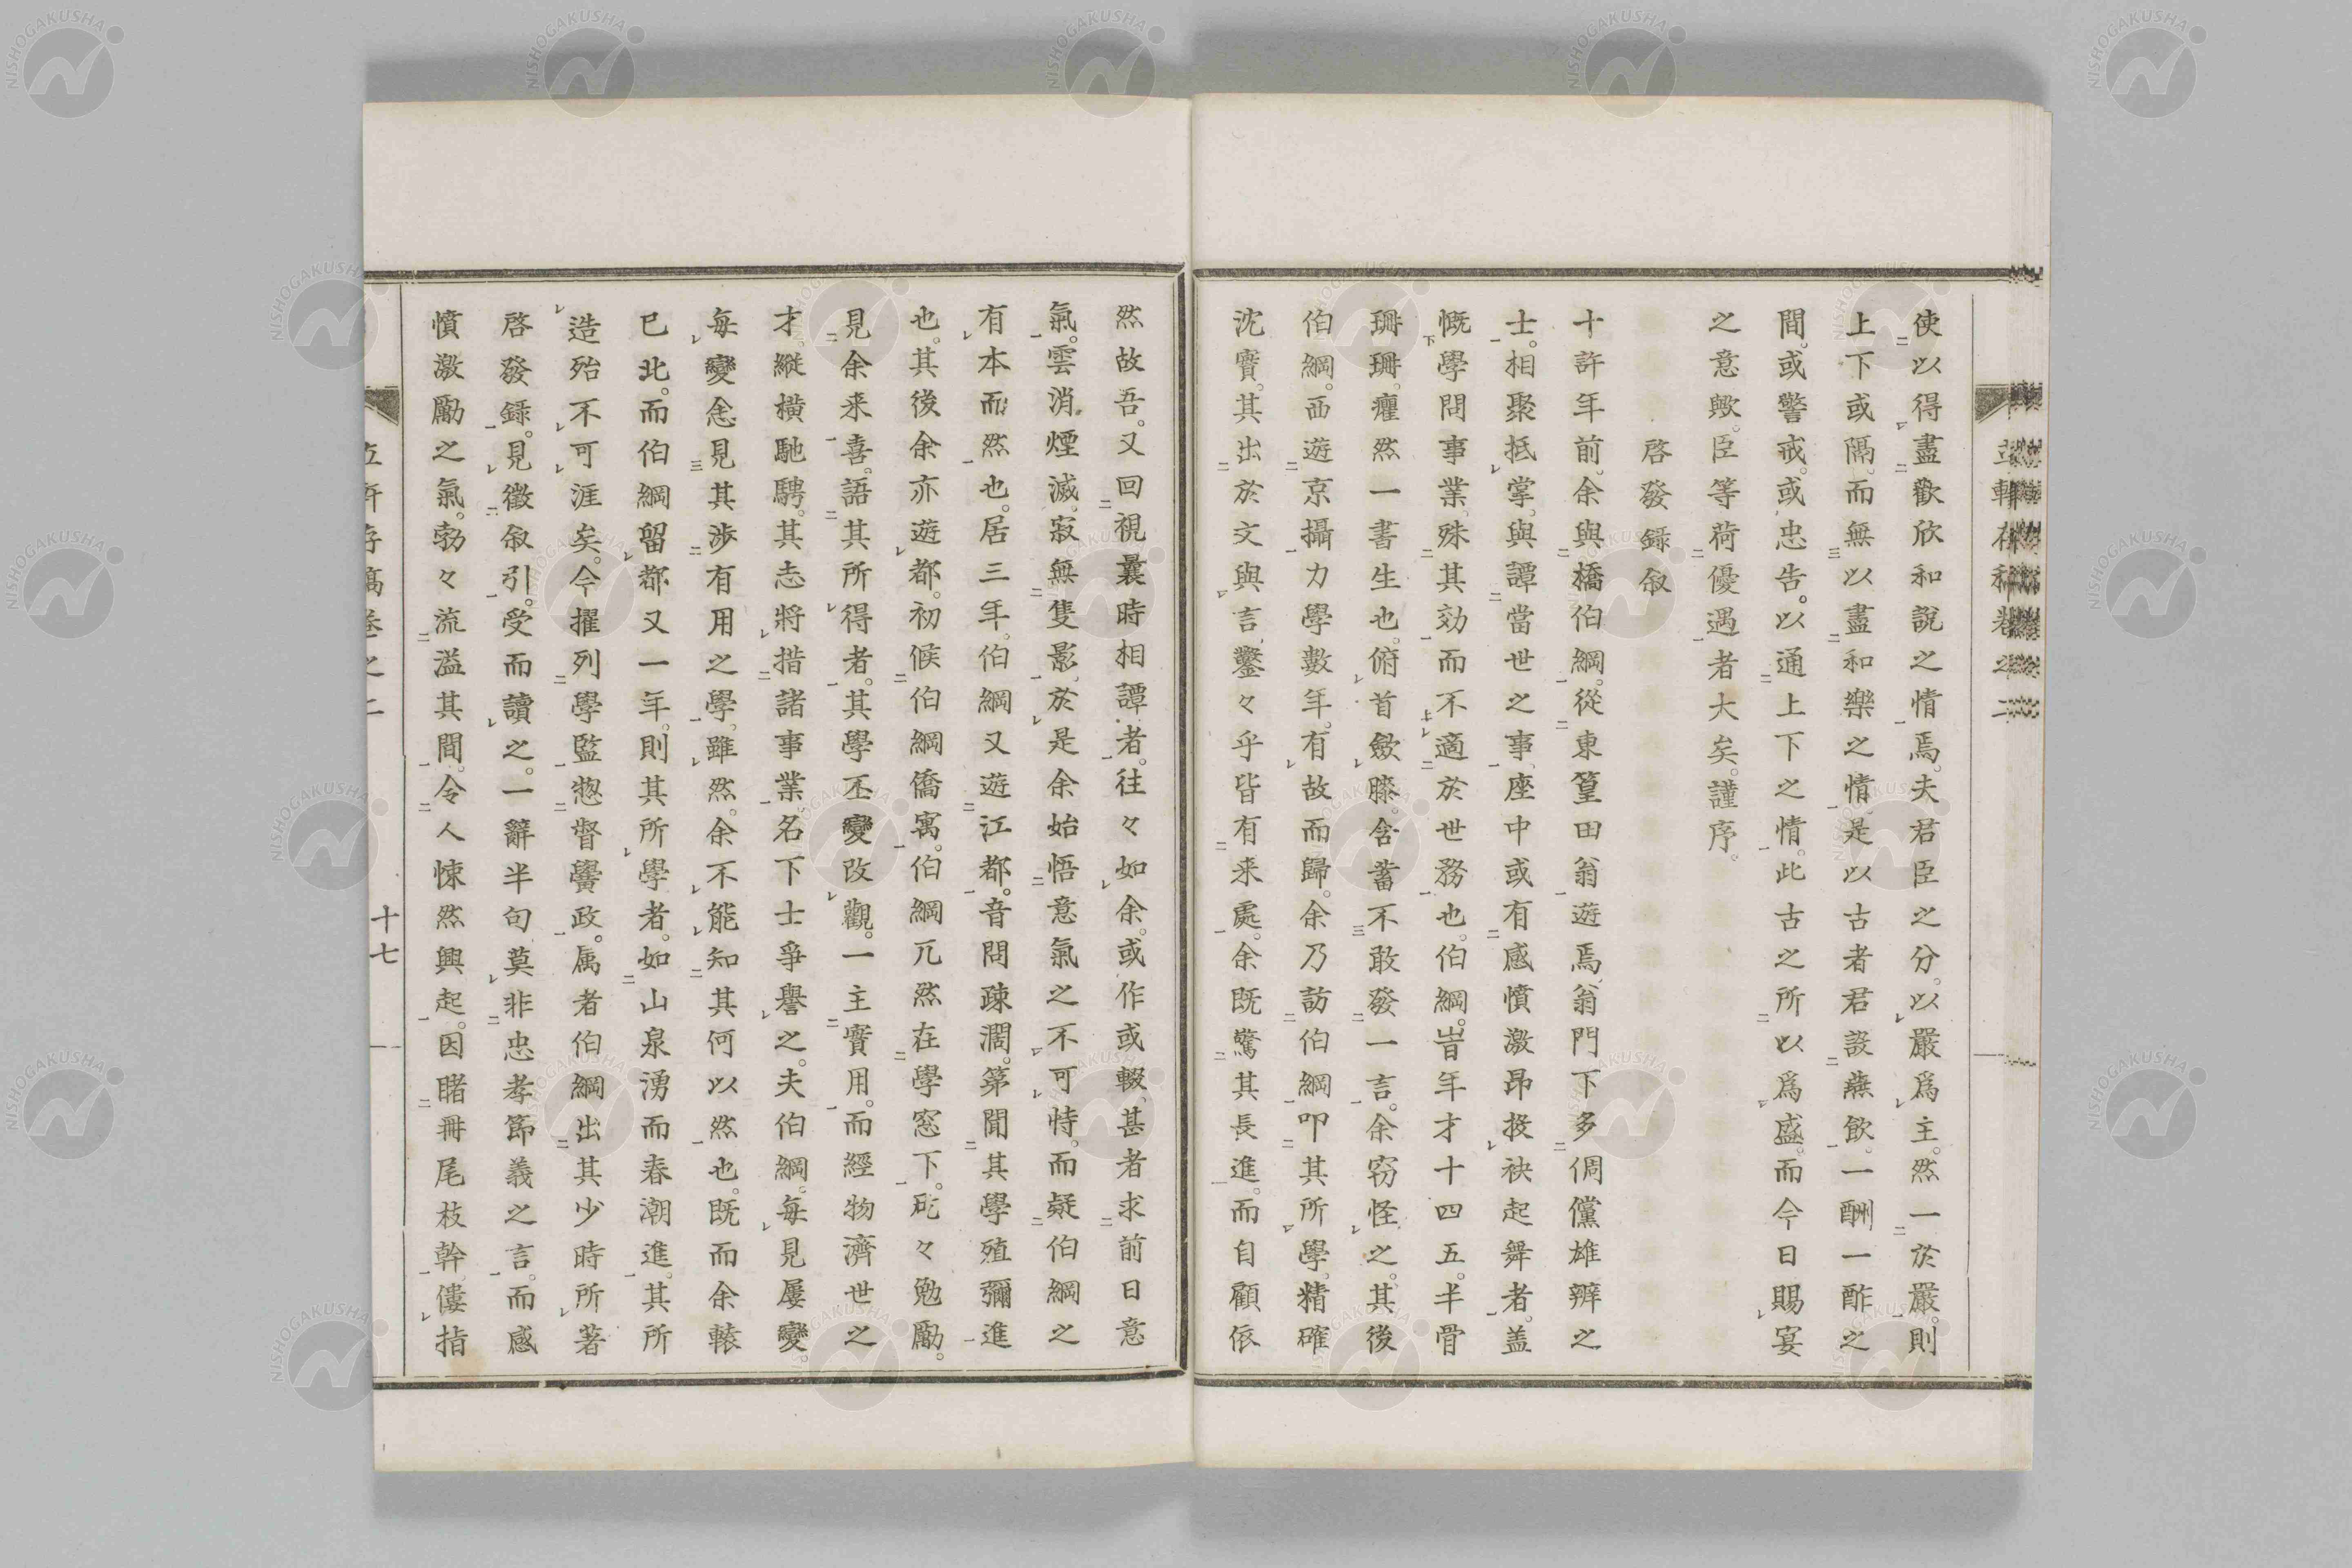 使以得盡歡欣和説之情焉。夫君臣之分。以嚴爲主。然一於嚴。則
上下或隔。而無以盡和樂之情。是以古者君設燕飲。一酬一酢之
間。或警戒。或忠告。以通上下之情。此古之所以爲盛。而今日賜宴
之意歟。臣等荷優遇者大矣。謹序。
啓發錄叙
十許年前。余與橋伯綱。從東篁田翁遊焉。翁門下多倜儻雄辨之
士。相聚抵掌。與譚當世之事。座中或有感憤激昂投袂起舞者。盖
慨學問事業。殊其効而不適於世務也。伯綱。旹年才十四五。半骨
珊珊。癯然一書生也。俯首斂膝。含蓄不敢發一言。余窃怪之。其後
伯綱。西遊京攝力學數年。有故而歸。余乃訪伯綱叩其所學。精確
沈實。其出於文與言。鑿々乎皆有来處。余既驚其長進。而自顧依
然故吾。又回視曩時相譚者。往々如余。或作或輟。甚者求前日意
氣。雲消煙滅。寂無隻影。於是余始悟意氣之不可恃。而疑伯綱之
有本而然也。居三年。伯綱又遊江都。音問疎濶。第聞其學殖彌進
也。其後余亦遊都。初候伯綱僑寓。伯綱兀然在學窓下。矻々勉勵。
見余来喜。語其所得者。其學丕變改觀。一主實用。而經物濟世之
才。縱横馳騁。其志將措諸事業。名下士爭譽之。夫伯綱。每見屢變。
每變念見其渉有用之學。雖然。余不能知其何以然也。既而余轅
已北。而伯綱留都又一年。則其所學者。如山泉湧而春潮進。其所
造殆不可涯矣。今擢列學監惣督黌政。属者伯綱出其少時所著
啓發録。見徵叙引。受而讀之。一辭半句莫非忠孝節義之言。而感
憤激勵之氣。勃々流溢其間。令人悚然興起。因睹冊尾枝幹。僂指
十七